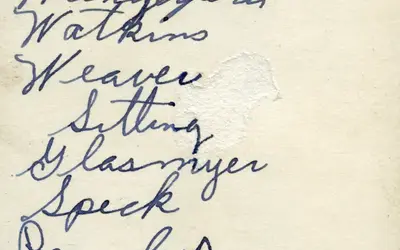 Watkins
Weaver
Sitting
Glasmyer
Speck